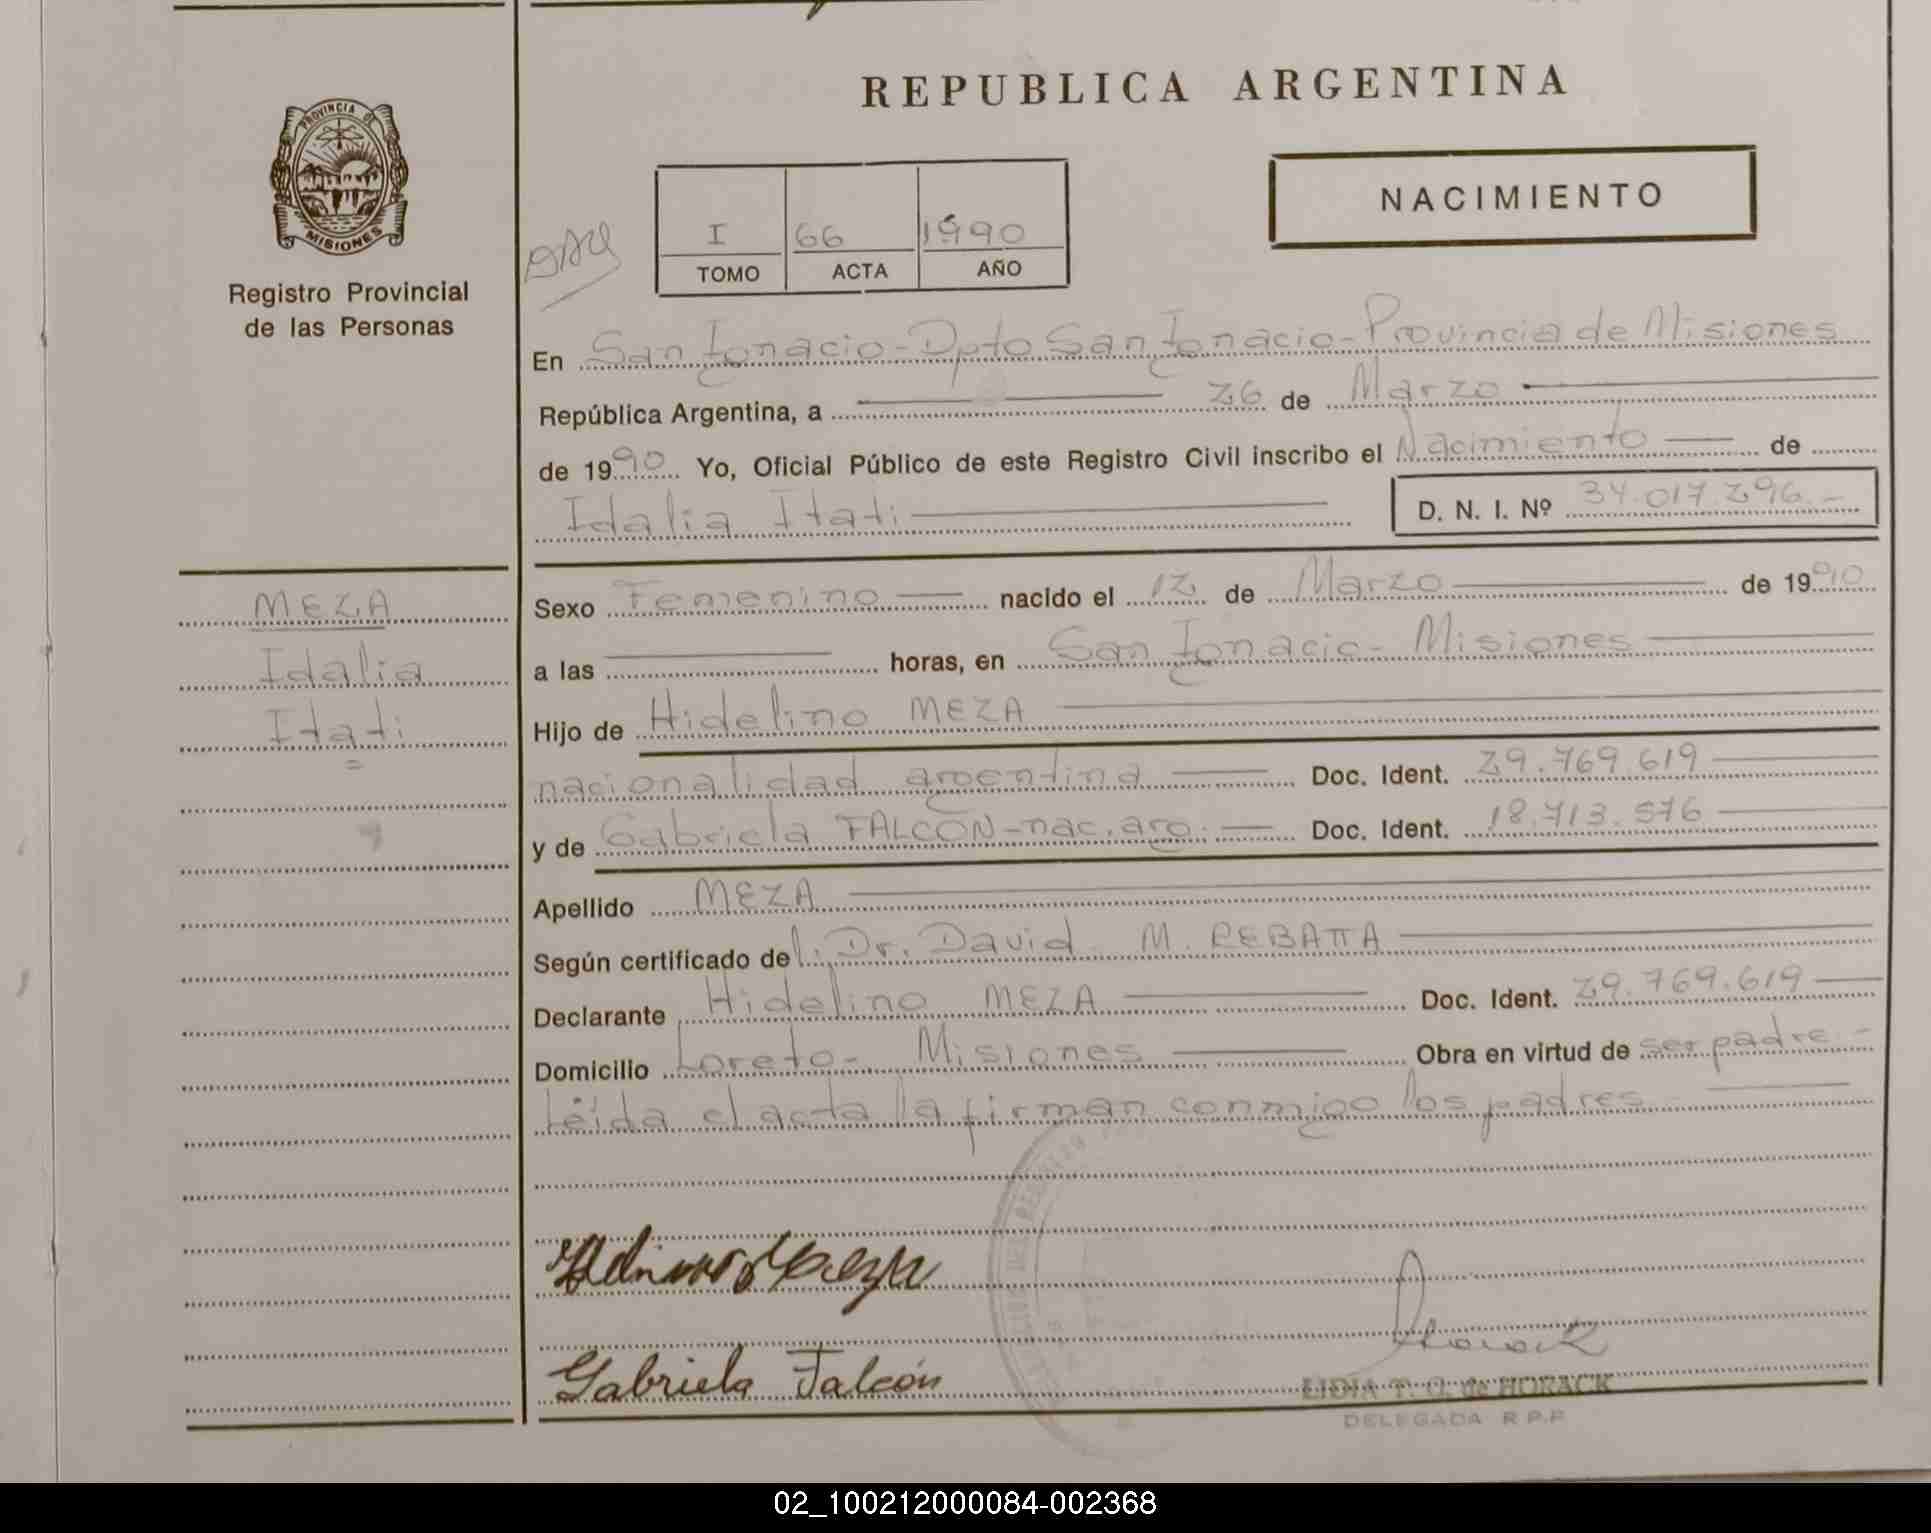 REPUBLICA ARGENTINA
PROVINCIA DE
MISIONES
Registro Provincial
de las Personas
NACIMIENTO
I 66 1990
TOMO ACTA AÑO
En San Ignacio - Dpto San Ignacio - Provincia de Misiones
República Argentina, a 26 de Marzo
de 1990 Yo, Oficial Público de este Registro Civil inscribo el Nacimiento de
Idalia Itati D. N. I. Nº 34.017.296.-
MEZA
Idalia
Itati
Sexo Femenino nacido el 12 de Marzo de 1990
a las horas, en San Ignacio - Misiones
Hijo de Hidelino MEZA
nacionalidad argentina Doc. Ident. 29.769.619
y de Gabriela FALCÓN - nac. arg. Doc. Ident. 18.713.576
Apellido MEZA
Según certificado del. Dr. David M. REBATTA
Declarante Hidelino MEZA Doc. Ident. 29.769.619
Domicilio Loreto - Misiones Obra en virtud de ser padre -
Léida el acta la firman conmigo los padres
Gabriela Falcón
LIDIA T. O. de HORACK
DELEGADA R.P.P
02_100212000084-002368